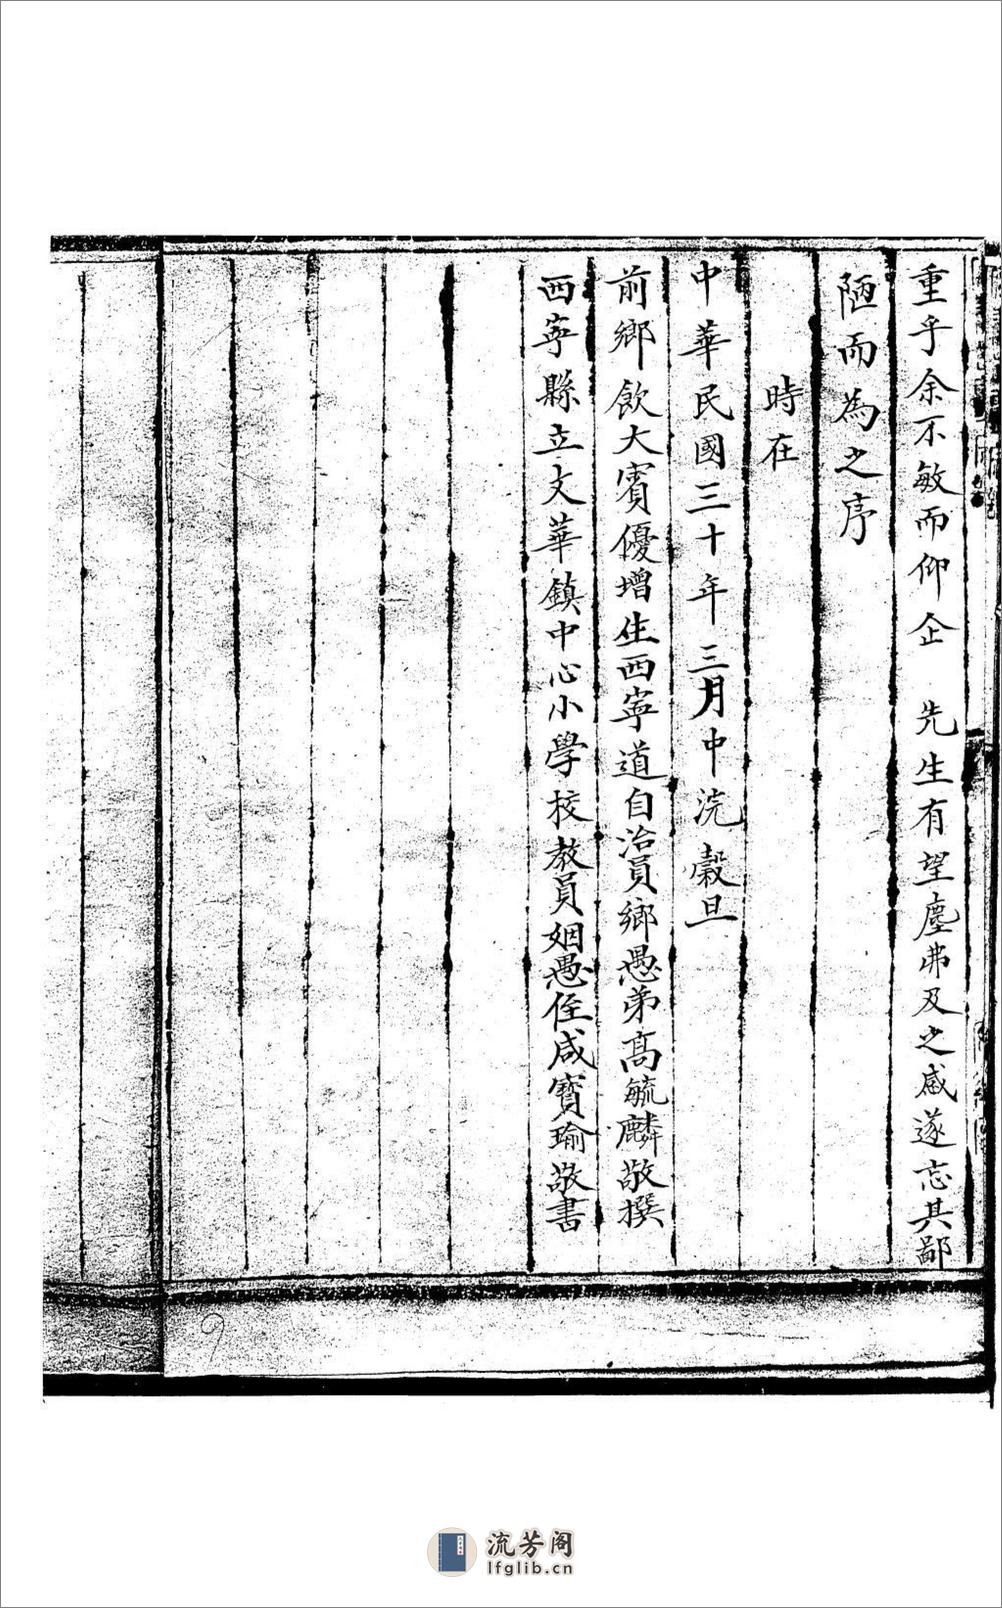 重乎余不敏而仰企　先生有望塵弗及之感遂忘其鄙
陋而為之序
時在
中華民國三十年三月中浣穀旦
前鄉飲大賓優增生西寧道自治員鄉愚弟高毓麟敬撰
西寧縣立文華鎮中心小學校教員姻愚侄咸寶瑜敬書
9
流芳阁
lfglib.cn